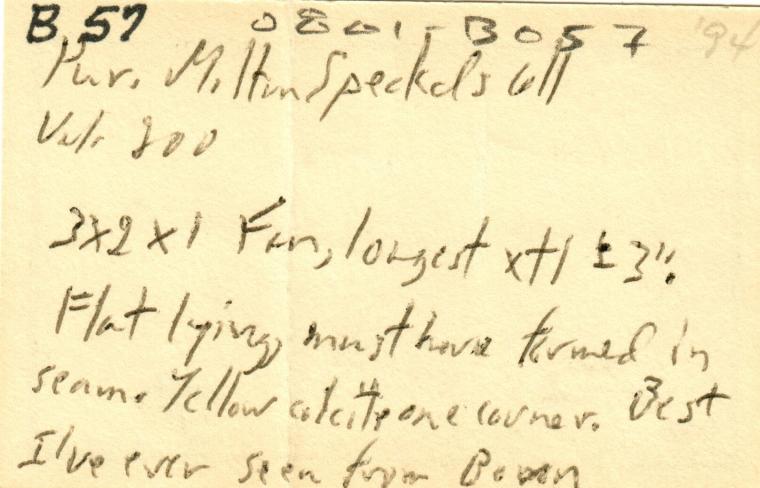 B 57 0801-B057 '94
Pur. Milton Speckels Coll
Val. 800
3x2x1 Fan, longest xtl ± 3".
Flat lying, must have formed in
seam. Yellow calcite one corner. Best
I've ever seen from